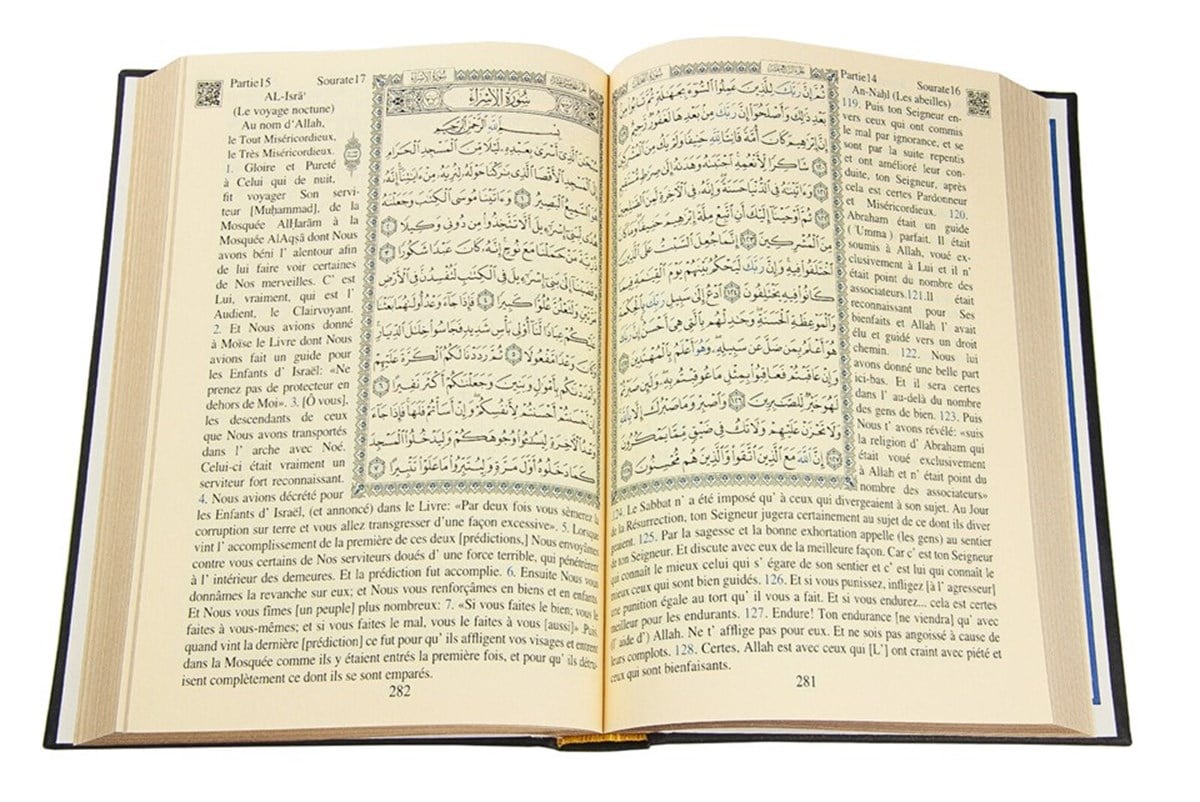 Partie14 Sourate16
An-Naḥl (Les abeilles)
119. Puis ton Seigneur en-
vers ceux qui ont commis
le mal par ignorance, et se
sont par la suite repentis
et ont amélioré leur con-
duite, ton Seigneur, après
cela est certes Pardonneur
et Miséricordieux. 120.
Abraham était un guide
(`Umma) parfait. Il était
soumis à Allah, voué ex-
clusivement à Lui et il n'
était point du nombre des
associateurs.121.Il était
reconnaissant pour Ses
bienfaits et Allah l' avait
élu et guidé vers un droit
chemin. 122. Nous lui
avons donné une belle part
ici-bas. Et il sera certes
dans l' au-delà du nombre
des gens de bien. 123. Puis
Nous t' avons révélé: «suis
la religion d' Abraham qui
était voué exclusivement
à Allah et n' était point du
nombre des associateurs»
ثُمَّ إِنَّ رَبَّكَ لِلَّذِينَ عَمِلُوا السُّوءَ بِجَهَالَةٍ ثُمَّ تَابُوا
بَعْدِ ذَٰلِكَ وَأَصْلَحُوا إِنَّ رَبَّكَ مِنْ بَعْدِهَا لَغَفُورٌ رَحِيمٌ
إِنَّ إِبْرَاهِيمَ كَانَ أُمَّةً قَانِتًا لِلَّهِ حَنِيفًا وَلَمْ يَكُ مِنَ
شَاكِرًا لِأَنْعُمِهِ اجْتَبَاهُ وَهَدَاهُ إِلَىٰ صِرَاطٍ
وَآتَيْنَاهُ فِي الدُّنْيَا حَسَنَةً وَإِنَّهُ فِي الْآخِرَةِ لَمِنَ
ثُمَّ أَوْحَيْنَا إِلَيْكَ أَنِ اتَّبِعْ مِلَّةَ إِبْرَاهِيمَ حَنِيفًا وَمَا
مِنَ الْمُشْرِكِينَ ١٢٣ إِنَّمَا جُعِلَ السَّبْتُ عَلَى الَّذِينَ
اخْتَلَفُوا فِيهِ وَإِنَّ رَبَّكَ لَيَحْكُمُ بَيْنَهُمْ يَوْمَ الْقِيَامَةِ
كَانُوا فِيهِ يَخْتَلِفُونَ ١٢٤ ادْعُ إِلَىٰ سَبِيلِ رَبِّكَ بِالْحِكْمَةِ
وَالْمَوْعِظَةِ الْحَسَنَةِ وَجَادِلْهُمْ بِالَّتِي هِيَ أَحْسَنُ إِنَّ رَبَّكَ
هُوَ أَعْلَمُ بِمَنْ ضَلَّ عَنْ سَبِيلِهِ وَهُوَ أَعْلَمُ بِالْمُهْتَدِينَ
وَإِنْ عَاقَبْتُمْ فَعَاقِبُوا بِمِثْلِ مَا عُوقِبْتُمْ بِهِ وَلَئِنْ صَبَرْتُمْ
لَهُوَ خَيْرٌ لِلصَّابِرِينَ ١٢٦ وَاصْبِرْ وَمَا صَبْرُكَ إِلَّا بِاللَّهِ
وَلَا تَحْزَنْ عَلَيْهِمْ وَلَا تَكُ فِي ضَيْقٍ مِمَّا يَمْكُرُونَ
إِنَّ اللَّهَ مَعَ الَّذِينَ اتَّقَوْا وَالَّذِينَ هُمْ مُحْسِنُونَ
124. Le Sabbat n' a été imposé qu' à ceux qui divergeaient à son sujet. Au Jour
de la Résurrection, ton Seigneur jugera certainement au sujet de ce dont ils diver
geaient. 125. Par la sagesse et la bonne exhortation appelle (les gens) au sentier
de ton Seigneur. Et discute avec eux de la meilleure façon. Car c' est ton Seigneur
qui connaît le mieux celui qui s' égare de son sentier et c' est lui qui connaît le
mieux ceux qui sont bien guidés. 126. Et si vous punissez, infligez [à l' agresseur]
une punition égale au tort qu' il vous a fait. Et si vous endurez... cela est certes
meilleur pour les endurants. 127. Endure! Ton endurance [ne viendra] qu' avec
(l' aide d') Allah. Ne t' afflige pas pour eux. Et ne sois pas angoissé à cause de
leurs complots. 128. Certes, Allah est avec ceux qui [L'] ont craint avec piété et
ceux qui sont bienfaisants.
281
Partie15 Sourate17
AL-Isrā'
(Le voyage noctune)
Au nom d'Allah,
le Tout Miséricordieux,
le Très Miséricordieux.
1. Gloire et Pureté
à Celui qui de nuit,
fit voyager Son servi-
teur [Muḥammad], de la
Mosquée AlḤarām à la
Mosquée AlAqṣā dont Nous
avons béni l' alentour afin
de lui faire voir certaines
de Nos merveilles. C' est
Lui, vraiment, qui est l'
Audient, le Clairvoyant.
2. Et Nous avions donné
à Moïse le Livre dont Nous
avions fait un guide pour
les Enfants d' Israël: «Ne
prenez pas de protecteur en
dehors de Moi». 3. [Ô vous],
les descendants de ceux
que Nous avons transportés
dans l' arche avec Noé.
Celui-ci était vraiment un
serviteur fort reconnaissant.
4. Nous avions décrété pour
سُورَةُ الْإِسْرَاءِ
بِسْمِ اللَّهِ الرَّحْمَٰنِ الرَّحِيمِ
الَّذِي أَسْرَىٰ بِعَبْدِهِ لَيْلًا مِنَ الْمَسْجِدِ الْحَرَامِ
إِلَى الْمَسْجِدِ الْأَقْصَا الَّذِي بَارَكْنَا حَوْلَهُ لِنُرِيَهُ مِنْ آيَاتِنَا إِنَّهُ
هُوَ السَّمِيعُ الْبَصِيرُ ١ وَآتَيْنَا مُوسَى الْكِتَابَ وَجَعَلْنَاهُ
هُدًى لِبَنِي إِسْرَائِيلَ أَلَّا تَتَّخِذُوا مِنْ دُونِي وَكِيلًا ٢
ذُرِّيَّةَ مَنْ حَمَلْنَا مَعَ نُوحٍ إِنَّهُ كَانَ عَبْدًا شَكُورًا ٣
وَقَضَيْنَا إِلَىٰ بَنِي إِسْرَائِيلَ فِي الْكِتَابِ لَتُفْسِدُنَّ فِي الْأَرْضِ
مَرَّتَيْنِ وَلَتَعْلُنَّ عُلُوًّا كَبِيرًا ٤ فَإِذَا جَاءَ وَعْدُ أُولَاهُمَا بَعَثْنَا
عَلَيْكُمْ عِبَادًا لَنَا أُولِي بَأْسٍ شَدِيدٍ فَجَاسُوا خِلَالَ الدِّيَارِ
وَكَانَ وَعْدًا مَفْعُولًا ٥ ثُمَّ رَدَدْنَا لَكُمُ الْكَرَّةَ عَلَيْهِمْ
وَأَمْدَدْنَاكُمْ بِأَمْوَالٍ وَبَنِينَ وَجَعَلْنَاكُمْ أَكْثَرَ نَفِيرًا ٦
أَحْسَنْتُمْ أَحْسَنْتُمْ لِأَنْفُسِكُمْ وَإِنْ أَسَأْتُمْ فَلَهَا فَإِذَا جَاءَ
وَعْدُ الْآخِرَةِ لِيَسُوءُوا وُجُوهَكُمْ وَلِيَدْخُلُوا الْمَسْجِدَ
كَمَا دَخَلُوهُ أَوَّلَ مَرَّةٍ وَلِيُتَبِّرُوا مَا عَلَوْا تَتْبِيرًا ٧
les Enfants d' Israël, (et annoncé) dans le Livre: «Par deux fois vous sèmerez la
corruption sur terre et vous allez transgresser d'une façon excessive». 5. Lorsque
vint l' accomplissement de la première de ces deux [prédictions,] Nous envoyâmes
contre vous certains de Nos serviteurs doués d' une force terrible, qui pénétrèrent
à l' intérieur des demeures. Et la prédiction fut accomplie. 6. Ensuite Nous vous
donnâmes la revanche sur eux; et Nous vous renforçâmes en biens et en enfants.
Et Nous vous fîmes [un peuple] plus nombreux: 7. «Si vous faites le bien; vous le
faites à vous-mêmes; et si vous faites le mal, vous le faites à vous [aussi]» .Puis,
quand vint la dernière [prédiction] ce fut pour qu' ils affligent vos visages et entrent
dans la Mosquée comme ils y étaient entrés la première fois, et pour qu' ils détru-
isent complètement ce dont ils se sont emparés.
282